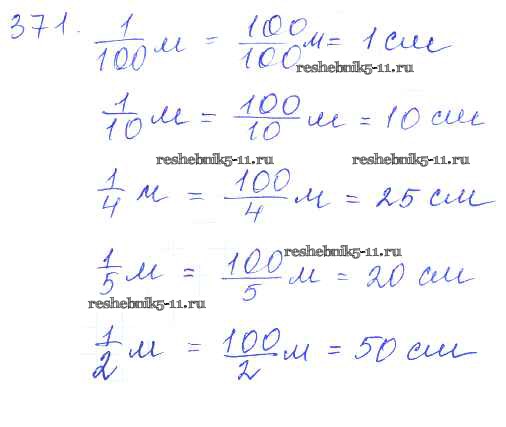 371. 1/100 м = 100/100 м = 1 см
reshebnik5-11.ru
1/10 м = 100/10 м = 10 см
reshebnik5-11.ru reshebnik5-11.ru
1/4 м = 100/4 м = 25 см
reshebnik5-11.ru
1/5 м = 100/5 м = 20 см
reshebnik5-11.ru
1/2 м = 100/2 м = 50 см